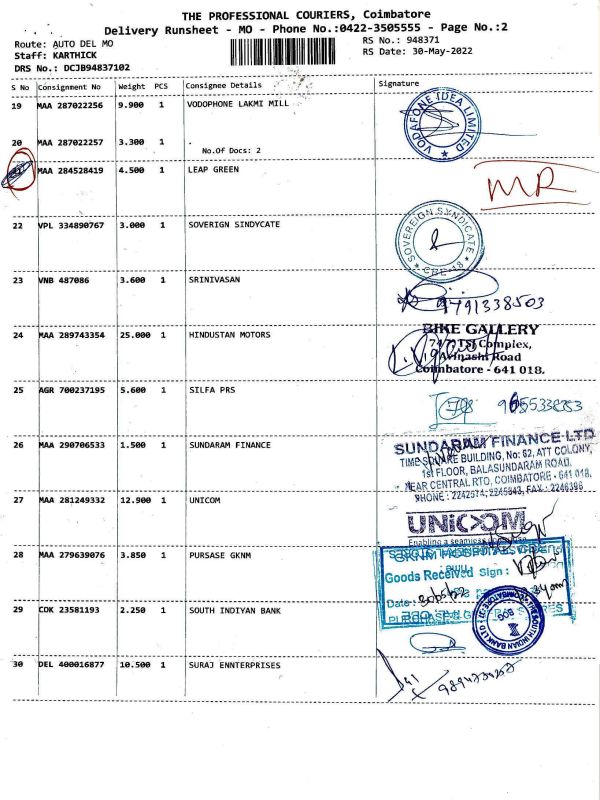 THE PROFESSIONAL COURIERS, Coimbatore
Delivery Runsheet - MO - Phone No.:0422-3505555 - Page No.:2
Route: AUTO DEL MO
RS No.: 948371
Staff: KARTHICK
RS Date: 30-May-2022
DRS No.: DCJB94837102
S No Consignment No Weight PCS Consignee Details Signature
19 MAA 287022256 9.900 1 VODOPHONE LAKMI MILL
VODAFONE IDEA LIMITED
20 MAA 287022257 3.300 1 .
No.Of Docs: 2
MAA 284528419 4.500 1 LEAP GREEN
MR
22 VPL 334890767 3.000 1 SOVERIGN SINDYCATE
SOVEREIGN SYNDICATE
CBE-18
23 VNB 487086 3.600 1 SRINIVASAN
9791338503
24 MAA 289743354 25.000 1 HINDUSTAN MOTORS
BIKE GALLERY
TSI Complex,
Avinashi Road
Coimbatore - 641 018.
25 AGR 700237195 5.600 1 SILFA PRS
26 MAA 290706533 1.500 1 SUNDARAM FINANCE
SUNDARAM FINANCE LTD
TIME SQUARE BUILDING, No: 62, ATT COLONY,
1st FLOOR, BALASUNDARAM ROAD,
NEAR CENTRAL RTO, COIMBATORE - 641 018.
PHONE : 2242574, 2245843, FAX : 2246396
27 MAA 281249332 12.900 1 UNICOM
UNICOM
Enabling a seamless
28 MAA 279639076 3.850 1 PURSASE GKNM
Goods Received Sign :
Date :
29 COK 23581193 2.250 1 SOUTH INDIYAN BANK
THE SOUTH INDIAN BANK LTD
COIMBATORE
30 DEL 400016877 10.500 1 SURAJ ENNTERPRISES